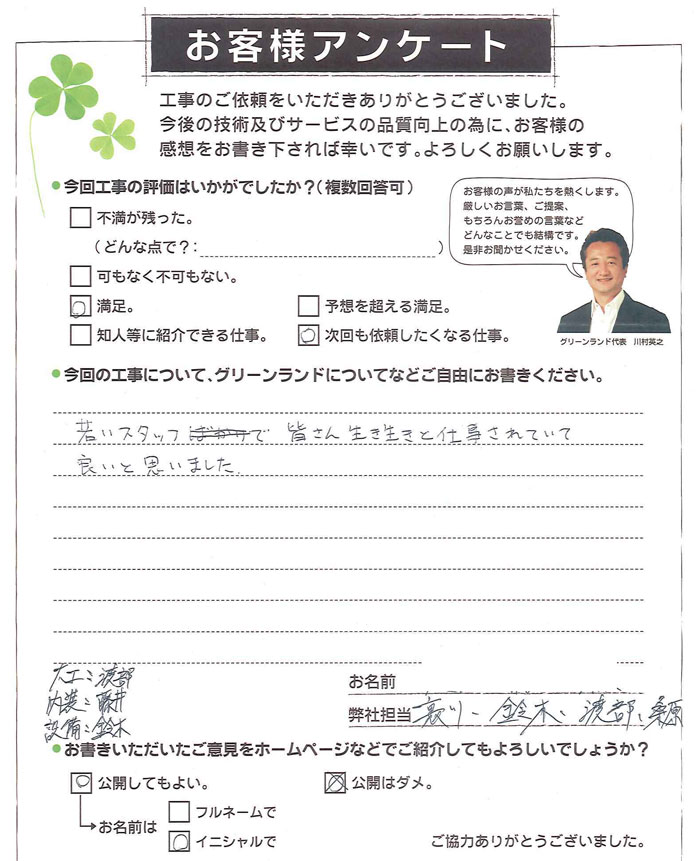 お客様アンケート
工事のご依頼をいただきありがとうございました。
今後の技術及びサービスの品質向上の為に、お客様の
感想をお書き下されば幸いです。よろしくお願いします。
今回工事の評価はいかがでしたか？（複数回答可）
お客様の声が私たちを熱くします。
厳しいお言葉、ご提案、
もちろんお誉めの言葉など
どんなことでも結構です。
是非お聞かせください。
不満が残った。
（どんな点で？： ）
可もなく不可もない。
満足。 予想を超える満足。
知人等に紹介できる仕事。 次回も依頼したくなる仕事。
グリーンランド代表 川村英之
今回の工事について、グリーンランドについてなどご自由にお書きください。
若いスタッフばかりで 皆さん生き生きと仕事されていて
良いと思いました.
大工：渡部
内装：藤井
設備：鈴木
お名前
弊社担当 鈴木、渡部、桑原
お書きいただいたご意見をホームページなどでご紹介してもよろしいでしょうか？
公開してもよい。 公開はダメ。
お名前は フルネームで
イニシャルで
ご協力ありがとうございました。